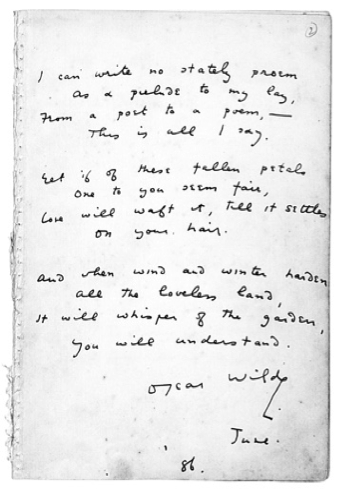 2
I can write no stately proem
As a prelude to my lay,
From a poet to a poem, —
This is all I say.
Yet if of these fallen petals
One to you seem fair,
Love will waft it, till it settles
On your hair.
And when wind and winter harden
All the loveless land,
It will whisper of the garden,
You will understand.
Oscar Wilde
June.
'86.